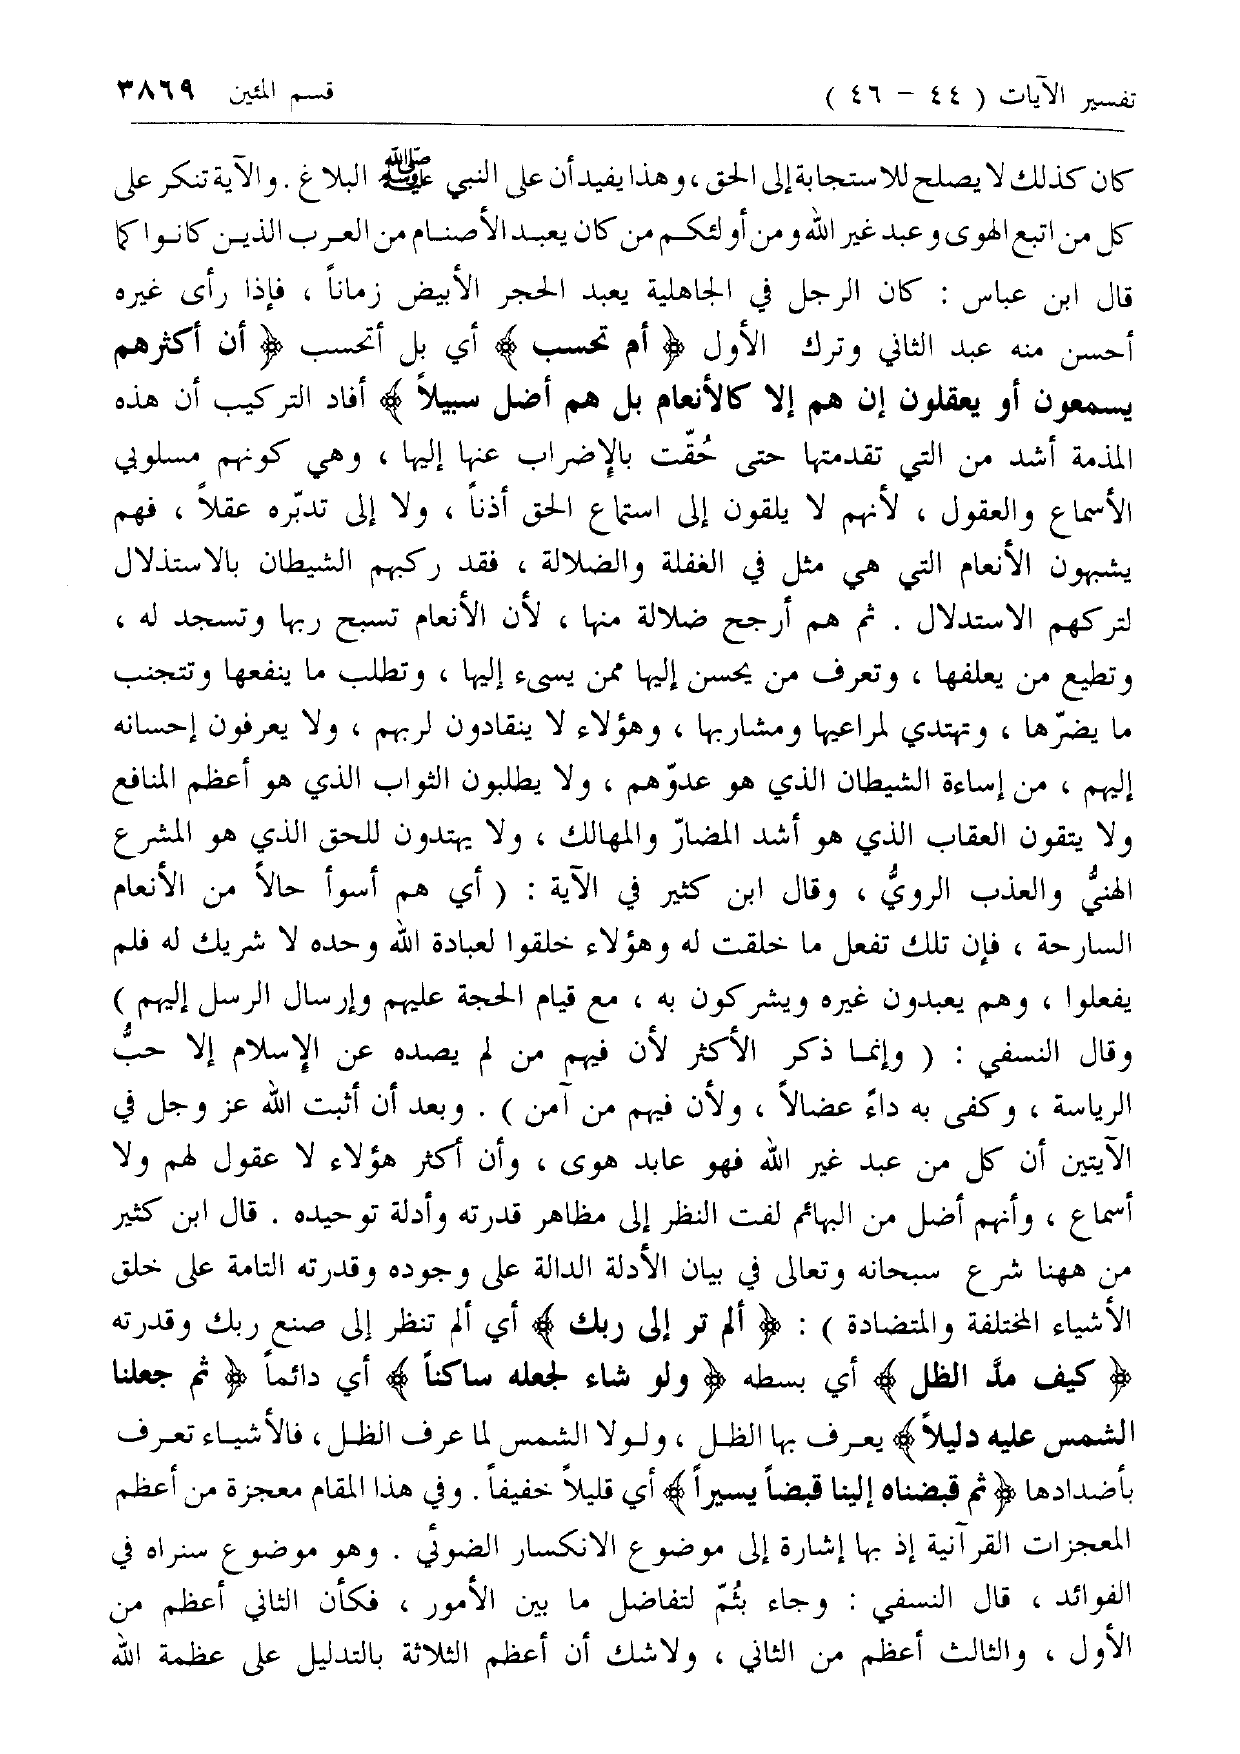 تفسير الآيات ( ٤٤ - ٤٦ )
قسم المئين ٣٨٦٩
كان كذلك لا يصلح للاستجابة إلى الحق ، وهذا يفيد أن على النبي ﷺ البلاغ . والآية تنكر على
كل من اتبع الهوى وعبد غير الله ومن أولئكم من كان يعبد الأصنام من العرب الذين كانوا كما
قال ابن عباس : كان الرجل في الجاهلية يعبد الحجر الأبيض زماناً ، فإذا رأى غيره
أحسن منه عبد الثاني وترك الأول ﴿ أم تحسب ﴾ أي بل أتحسب ﴿ أن أكثرهم
يسمعون أو يعقلون إن هم إلا كالأنعام بل هم أضل سبيلاً ﴾ أفاد التركيب أن هذه
المذمة أشد من التي تقدمتها حتى حُقّت بالإضراب عنها إليها ، وهي كونهم مسلوبي
الأسماع والعقول ، لأنهم لا يلقون إلى استماع الحق أذناً ، ولا إلى تدبّره عقلاً ، فهم
يشبهون الأنعام التي هي مثل في الغفلة والضلالة ، فقد ركبهم الشيطان بالاستذلال
لتركهم الاستدلال . ثم هم أرجح ضلالة منها ، لأن الأنعام تسبح ربها وتسجد له ،
وتطيع من يعلفها ، وتعرف من يحسن إليها ممن يسيء إليها ، وتطلب ما ينفعها وتتجنب
ما يضرّها ، وتهتدي لمراعيها ومشاربها ، وهؤلاء لا ينقادون لربهم ، ولا يعرفون إحسانه
إليهم ، من إساءة الشيطان الذي هو عدوّهم ، ولا يطلبون الثواب الذي هو أعظم المنافع
ولا يتقون العقاب الذي هو أشد المضارّ والمهالك ، ولا يهتدون للحق الذي هو المشرع
الهنيُّ والعذب الرويُّ ، وقال ابن كثير في الآية : ( أي هم أسوأ حالاً من الأنعام
السارحة ، فإن تلك تفعل ما خلقت له وهؤلاء خلقوا لعبادة الله وحده لا شريك له فلم
يفعلوا ، وهم يعبدون غيره ويشركون به ، مع قيام الحجة عليهم وإرسال الرسل إليهم )
وقال النسفي : ( وإنما ذكر الأكثر لأن فيهم من لم يصده عن الإسلام إلا حبُّ
الرياسة ، وكفى به داءً عضالاً ، ولأن فيهم من آمن ) . وبعد أن أثبت الله عز وجل في
الآيتين أن كل من عبد غير الله فهو عابد هوى ، وأن أكثر هؤلاء لا عقول لهم ولا
أسماع ، وأنهم أضل من البهائم لفت النظر إلى مظاهر قدرته وأدلة توحيده . قال ابن كثير
من ههنا شرع سبحانه وتعالى في بيان الأدلة الدالة على وجوده وقدرته التامة على خلق
الأشياء المختلفة والمتضادة ) : ﴿ ألم تر إلى ربك ﴾ أي ألم تنظر إلى صنع ربك وقدرته
﴿ كيف مدَّ الظل ﴾ أي بسطه ﴿ ولو شاء لجعله ساكناً ﴾ أي دائماً ﴿ ثم جعلنا
الشمس عليه دليلاً ﴾ يعرف بها الظل ، ولولا الشمس لما عرف الظل ، فالأشياء تعرف
بأضدادها ﴿ ثم قبضناه إلينا قبضاً يسيراً ﴾ أي قليلاً خفيفاً . وفي هذا المقام معجزة من أعظم
المعجزات القرآنية إذ بها إشارة إلى موضوع الانكسار الضوئي . وهو موضوع سنراه في
الفوائد ، قال النسفي : وجاء بثُمّ لتفاضل ما بين الأمور ، فكأن الثاني أعظم من
الأول ، والثالث أعظم من الثاني ، ولاشك أن أعظم الثلاثة بالتدليل على عظمة الله